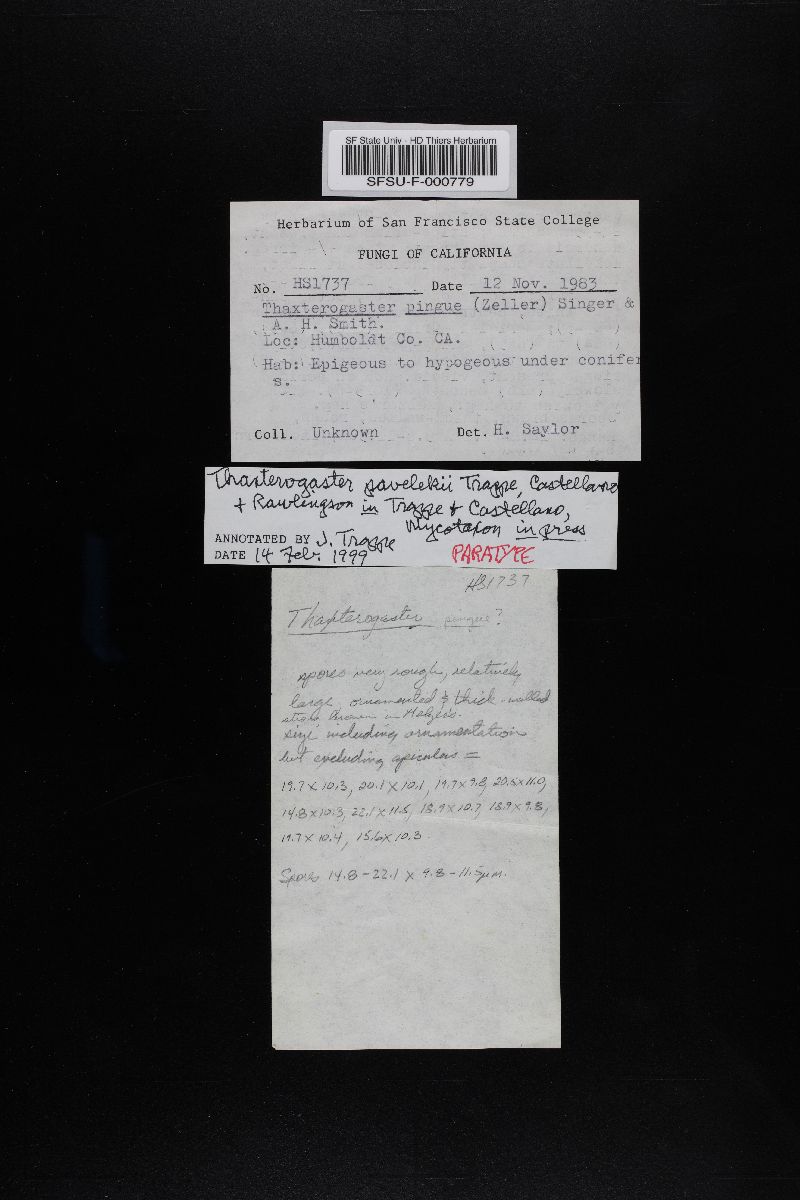 SF State Univ - HD Thiers Herbarium
SFSU-F-000779
Herbarium of San Francisco State College
FUNGI OF CALIFORNIA
No. HS1737 Date 12 Nov. 1983
Thaxterogaster pingue (Zeller) Singer &
A. H. Smith.
Loc: Humboldt Co. CA.
Hab: Epigeous to hypogeous under conifer
s.
Coll. Unknown Det. H. Saylor
Thaxterogaster pavelekii Trappe, Castellano
+ Rawlingson in Trappe & Castellano,
Mycotaxon in press
ANNOTATED BY J. Trappe
DATE 14 Feb. 1999 PARATYPE
HS1737
Thaxterogaster pingue?
spores very rough, relatively
large, ornamented & thick-walled
brown in Melzer's.
size including ornamentation
but excluding apiculus =
19.7 x 10.3, 20.1 x 10.1, 19.7 x 9.8, 20.5 x 11.0,
14.8 x 10.3, 22.1 x 11.5, 18.9 x 10.7, 18.9 x 9.8,
19.7 x 10.4, 15.6 x 10.3.
Spores 14.8 - 22.1 x 9.8 - 11.5 µm.